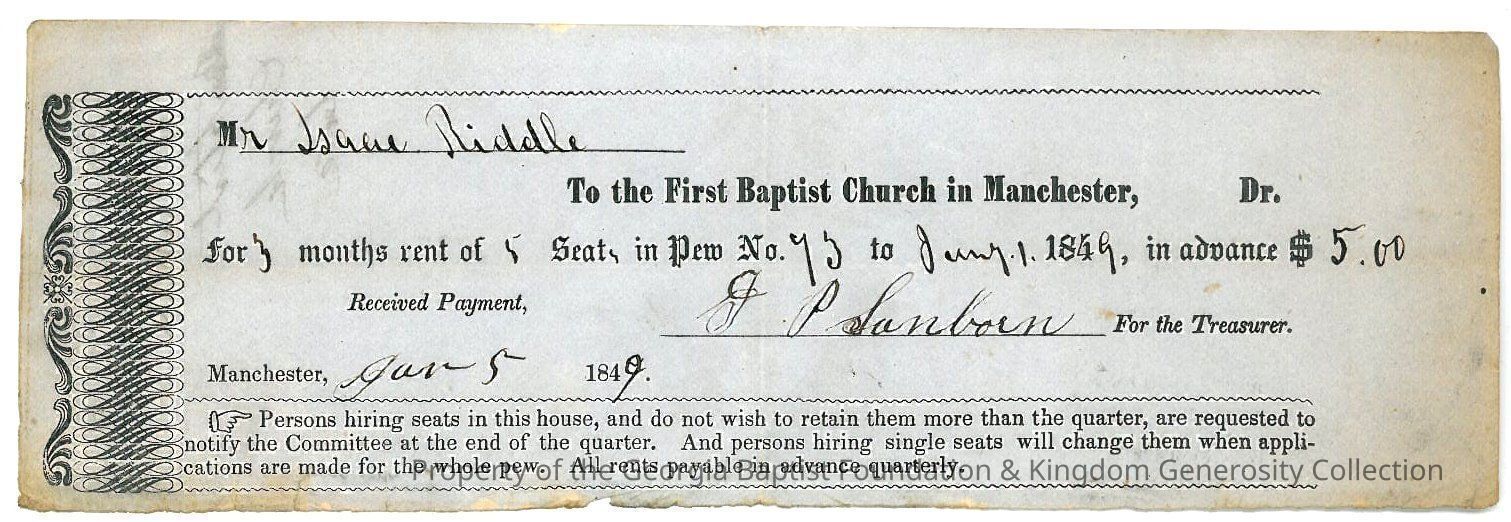 Mr Isaac Riddle
To the First Baptist Church in Manchester, Dr.
For 3 months rent of 5 Seats in Pew No. 73 to Jany. 1. 1849, in advance $ 5.00
Received Payment,
P Sanborn For the Treasurer.
Manchester, Jan 5 1849.
Persons hiring seats in this house, and do not wish to retain them more than the quarter, are requested to
notify the Committee at the end of the quarter. And persons hiring single seats will change them when appli-
cations are made for the whole pew. All rents payable in advance quarterly.
Property of the Georgia Baptist Foundation & Kingdom Generosity Collection